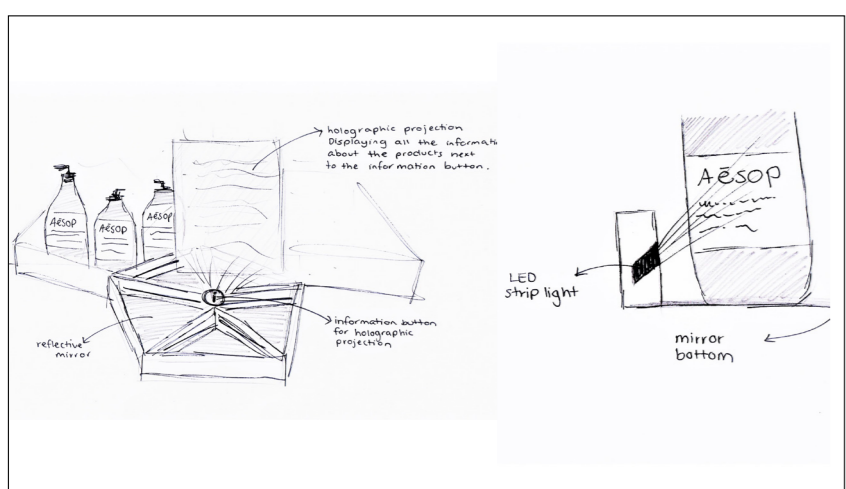 holographic projection
Displaying all the informati
about the products next
to the information button.
AēSOP
AēSOP
AēSOP
information button
for holographic
projection
reflective
mirror
AēSOP
LED
strip light
mirror
bottom